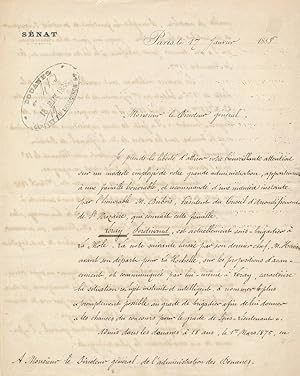 SÉNAT
Paris le 1er Janvier 188
DOUANES
Monsieur le Directeur général,
Je prends la liberté d'attirer votre bienveillante attention
sur un modeste employé de votre grande administration, appartenant
à une famille honorable, et recommandé d'une manière instante
par l'honorable M. Président du Conseil d'arrondissement
de St Nazaire, qui connait cette famille.
Ferdinand, est actuellement sous-brigadier à
la note suivante laissée par son dernier chef, M.
avant son départ pour la Rochelle, sur les propositions d'avan-
cement, et communiquée par lui-même à caractérise
sa situation: sujet instruit et intelligent, à nommer le plus
promptement possible, au grade de brigadier afin de lui donner
les chances du concours pour le grade de Sous-lieutenant.
Admis dans les douanes à 18 ans, le 1er Mars 1875, en
A Monsieur le Directeur général de l'administration des Douanes.